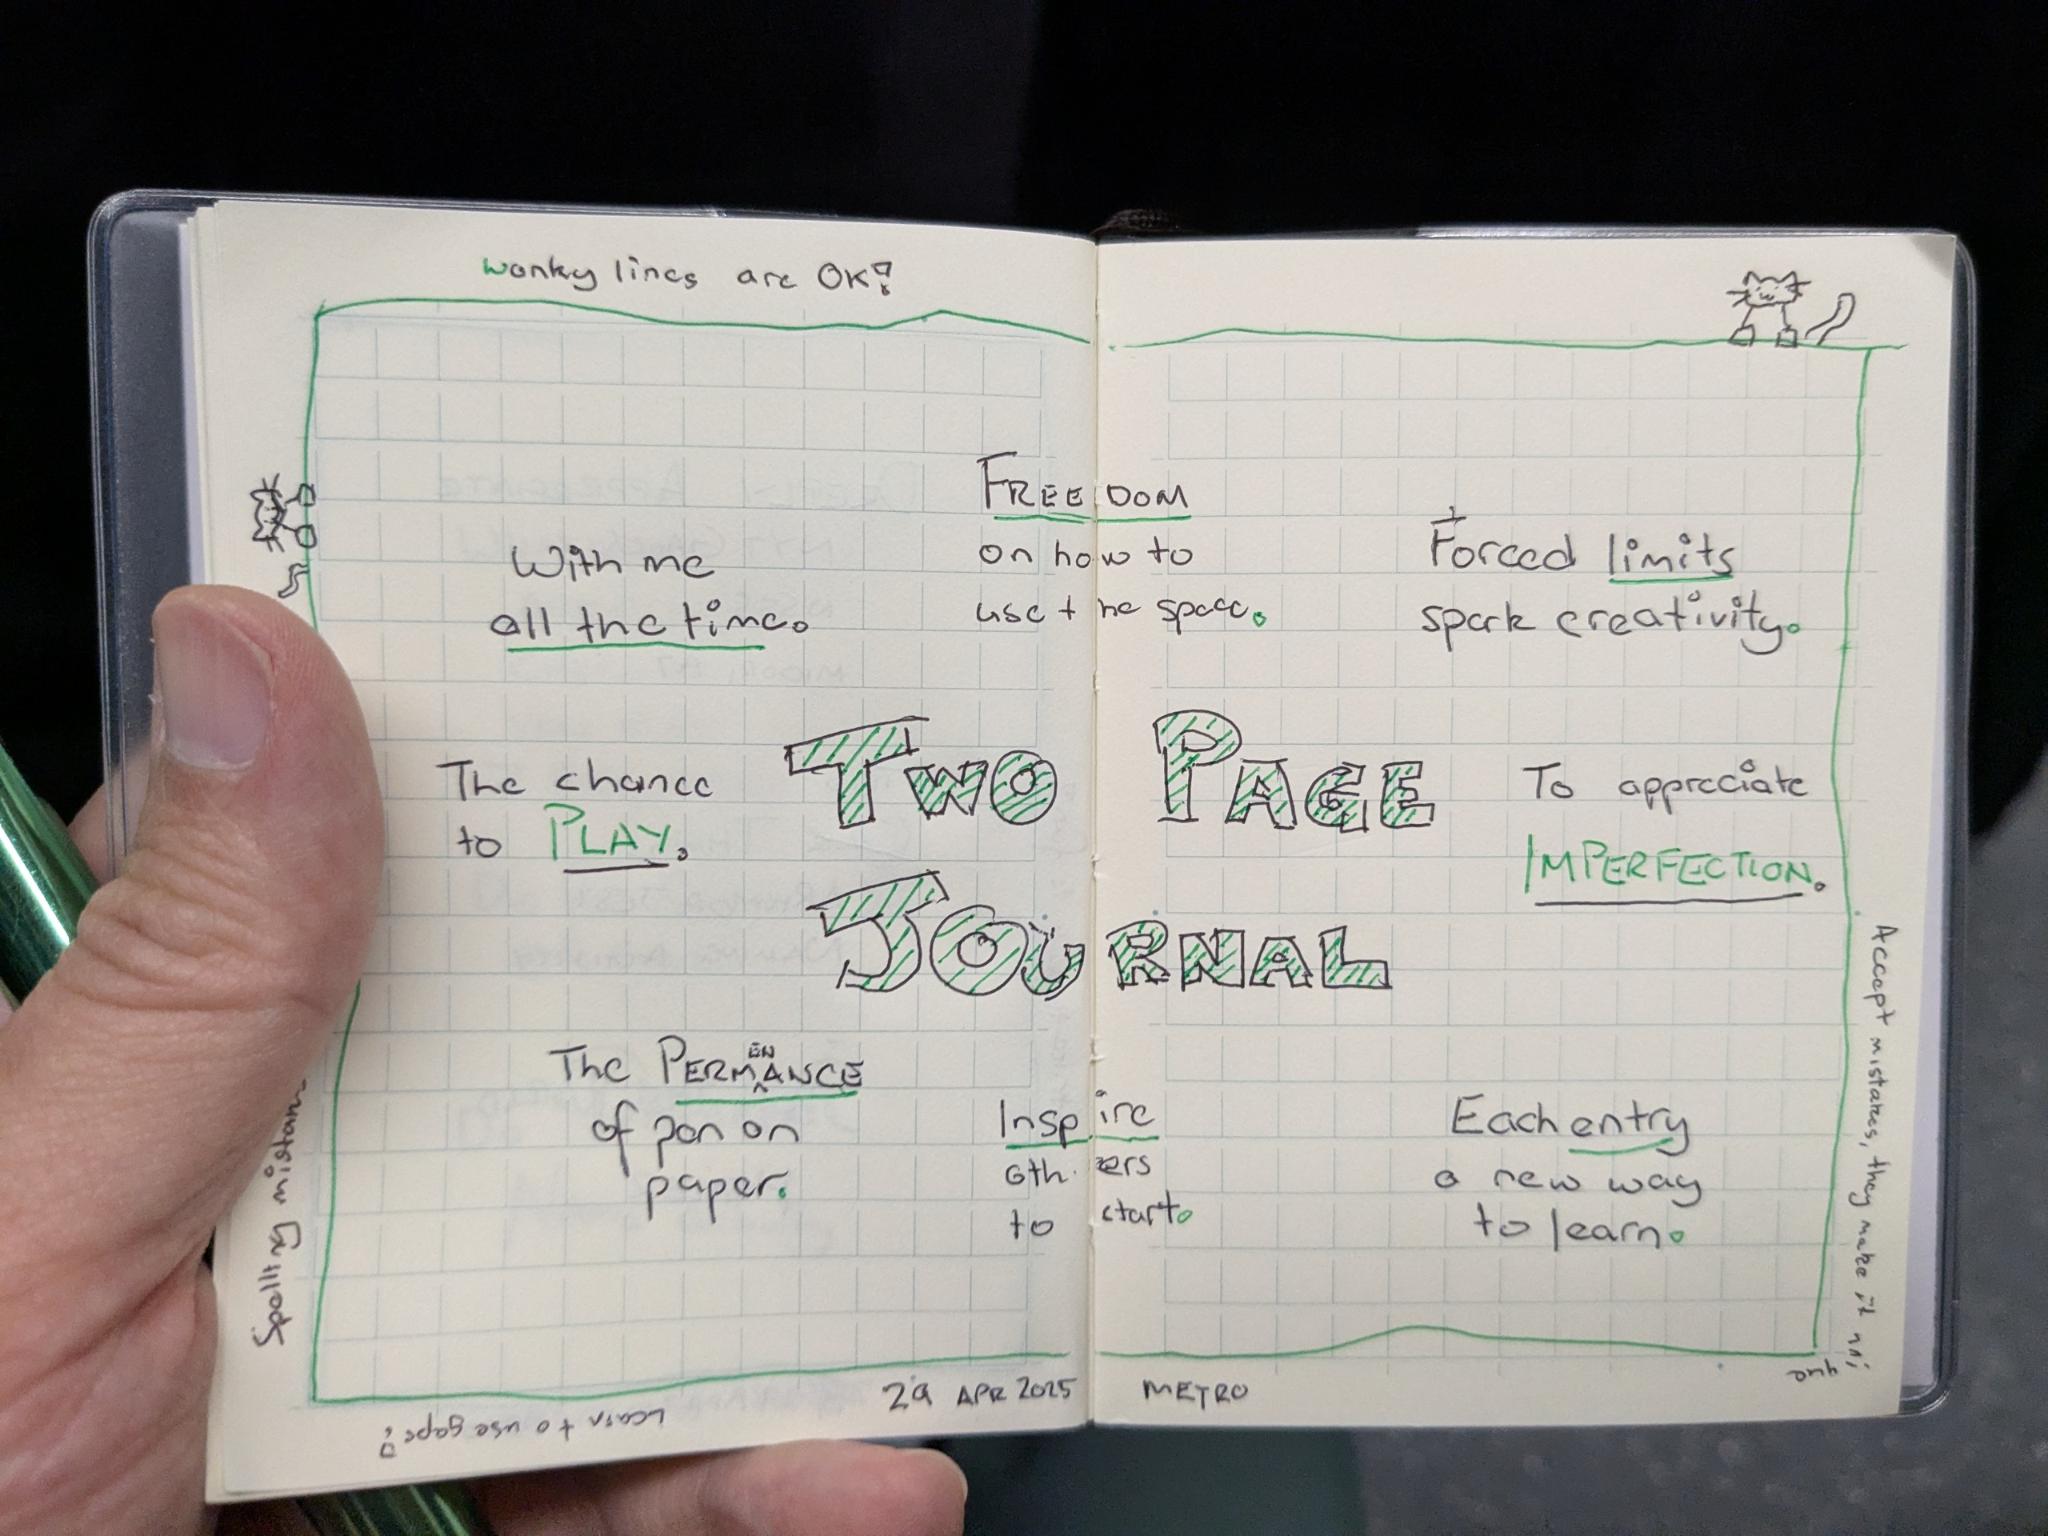 Wonky lines are OK!
With me
all the time.
FREEDOM
on how to
use the space.
Forced limits
spark creativity.
The chance
to PLAY.
TWO PAGE
JOURNAL
To appreciate
IMPERFECTION.
The PERMENANCE
of pen on
paper.
Inspire
others
to start.
Each entry
a new way
to learn.
Spelling
Accept mistakes, they make it uni
que
Learn to use gaps!
29 APR 2025 METRO